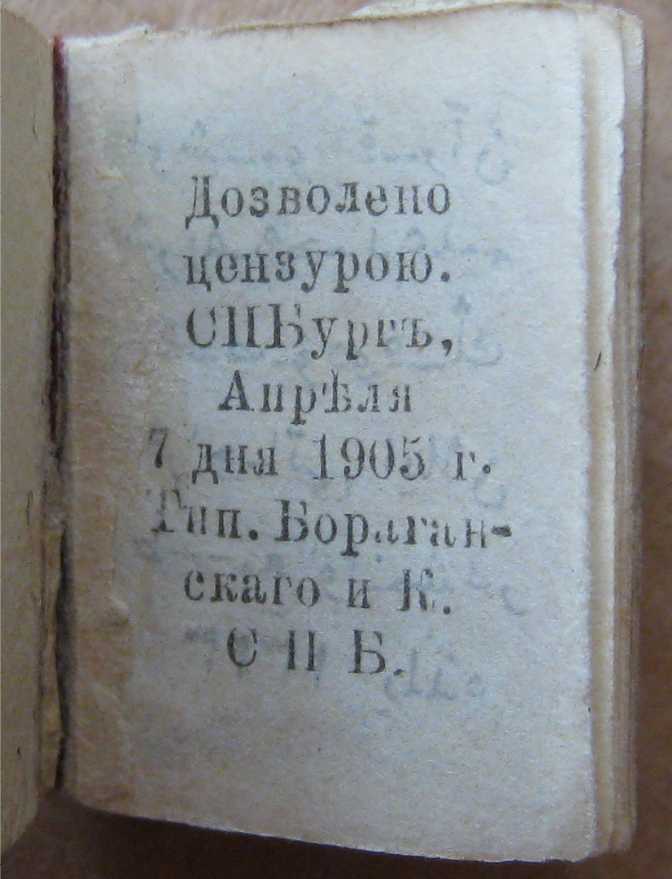 Дозволено
цензурою.
СПБургъ,
Апрѣля
7 дня 1905 г.
Тип. Бораган-
скаго и К.
С П Б.